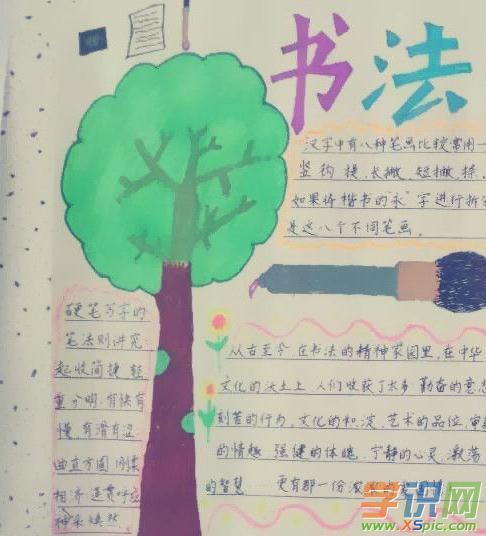 书法
汉字中有八种笔画比较常用一
竖 钩 提、长撇、短撇、捺、
如果将楷书的"永"字进行拆
是这八个不同笔画。
硬笔写字的
笔法则讲究
起收简捷 轻
重分明,有快有
慢,有滑有涩
曲直方圆,刚柔
相济 连贯呼应
神采焕然
从古至今 在书法的精神家园里,在中华
文化的沃土上 人们收获了太多 勤奋的意志
刻苦的行为,文化的积淀,艺术的品位,审
的情趣 强健的体魄、宁静的心灵、激荡
的智慧 更有那一份浓浓的
学识网
www.XSpic.com